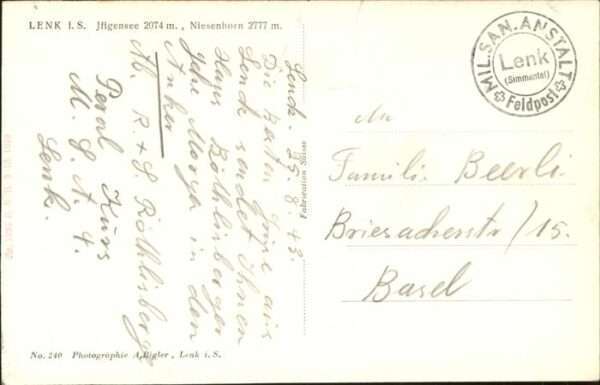 LENK i.S. Jffigensee 2074 m., Niesenhorn 2777 m.
MIL. SAN. ANSTALT
Lenk
(Simmental)
Feldpost
Lenk. 25.8.43.
Die besten Grüsse aus
Lenk sendet Ihnen
Hans Röthlisberger
Anker
Ab. R. + S. Röthlisberger
Kurs
M. S. A. 4.
Lenk.
Fabrication Suisse
An
Famili. Beerli.
Briesacherstr/15.
Basel
No. 240 Photographie A. Bigler, Lenk i. S.